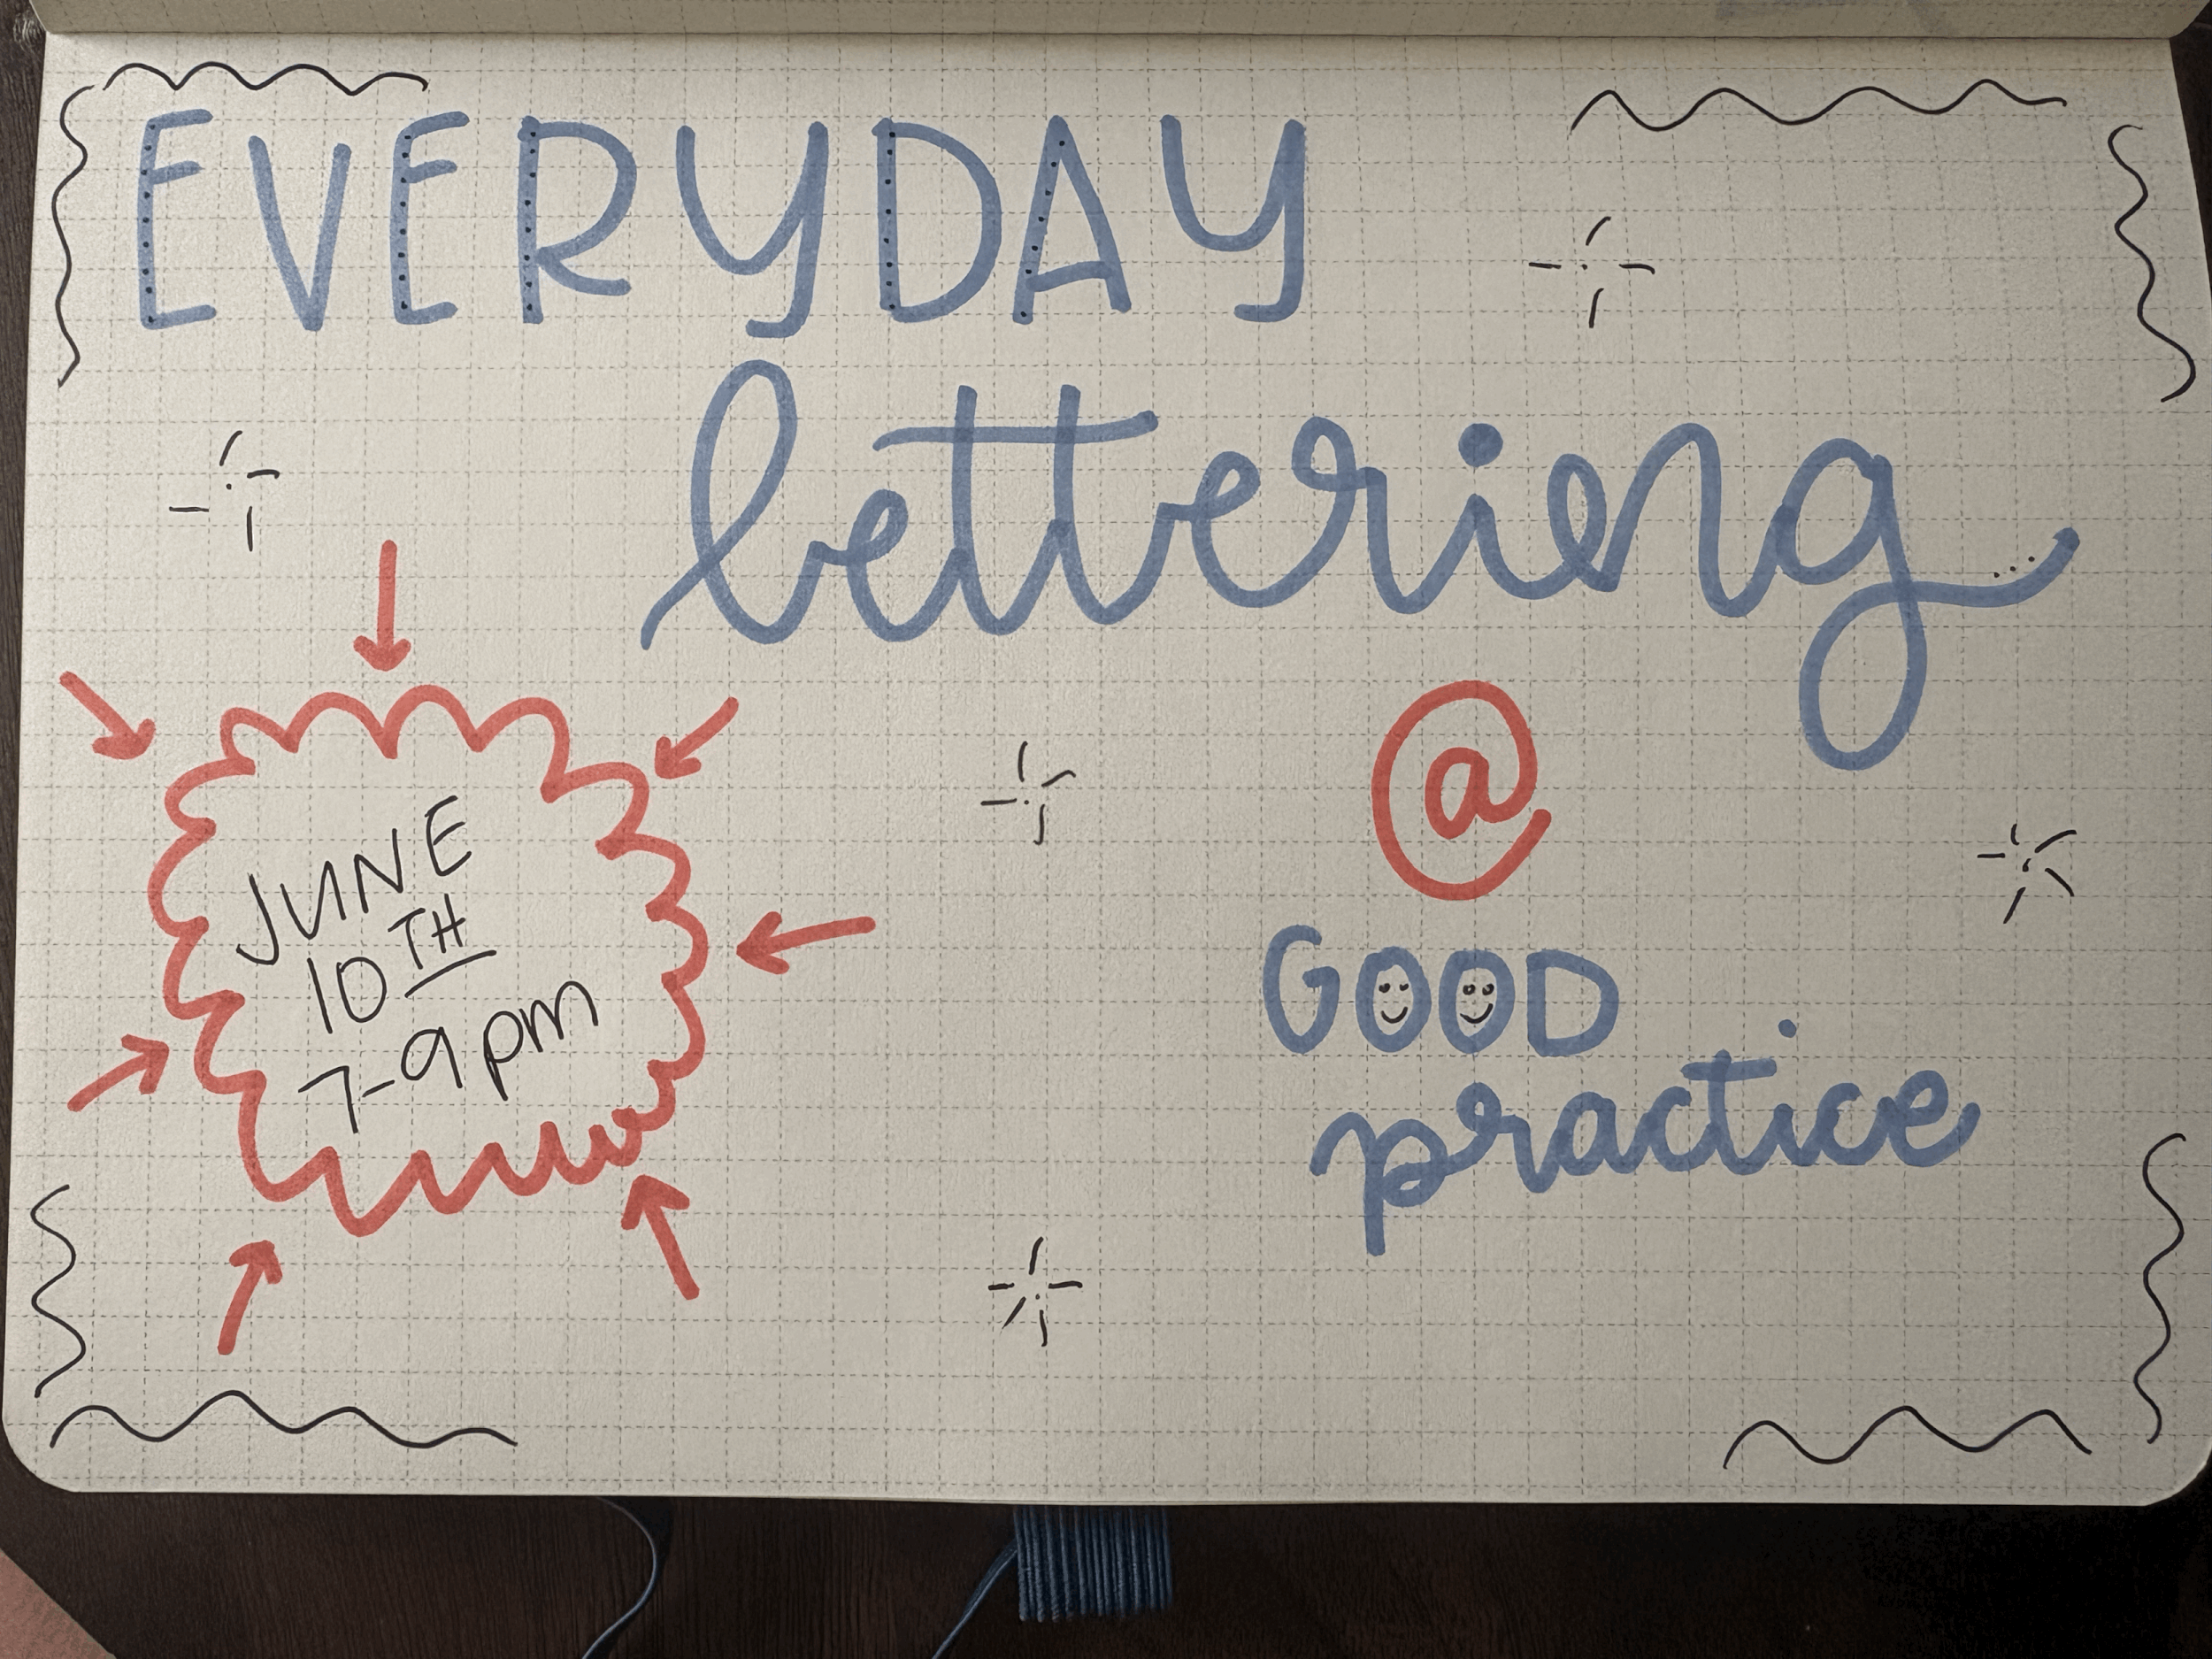 EVERYDAY
lettering
@
GOOD
practice
JUNE
10TH
7-9pm